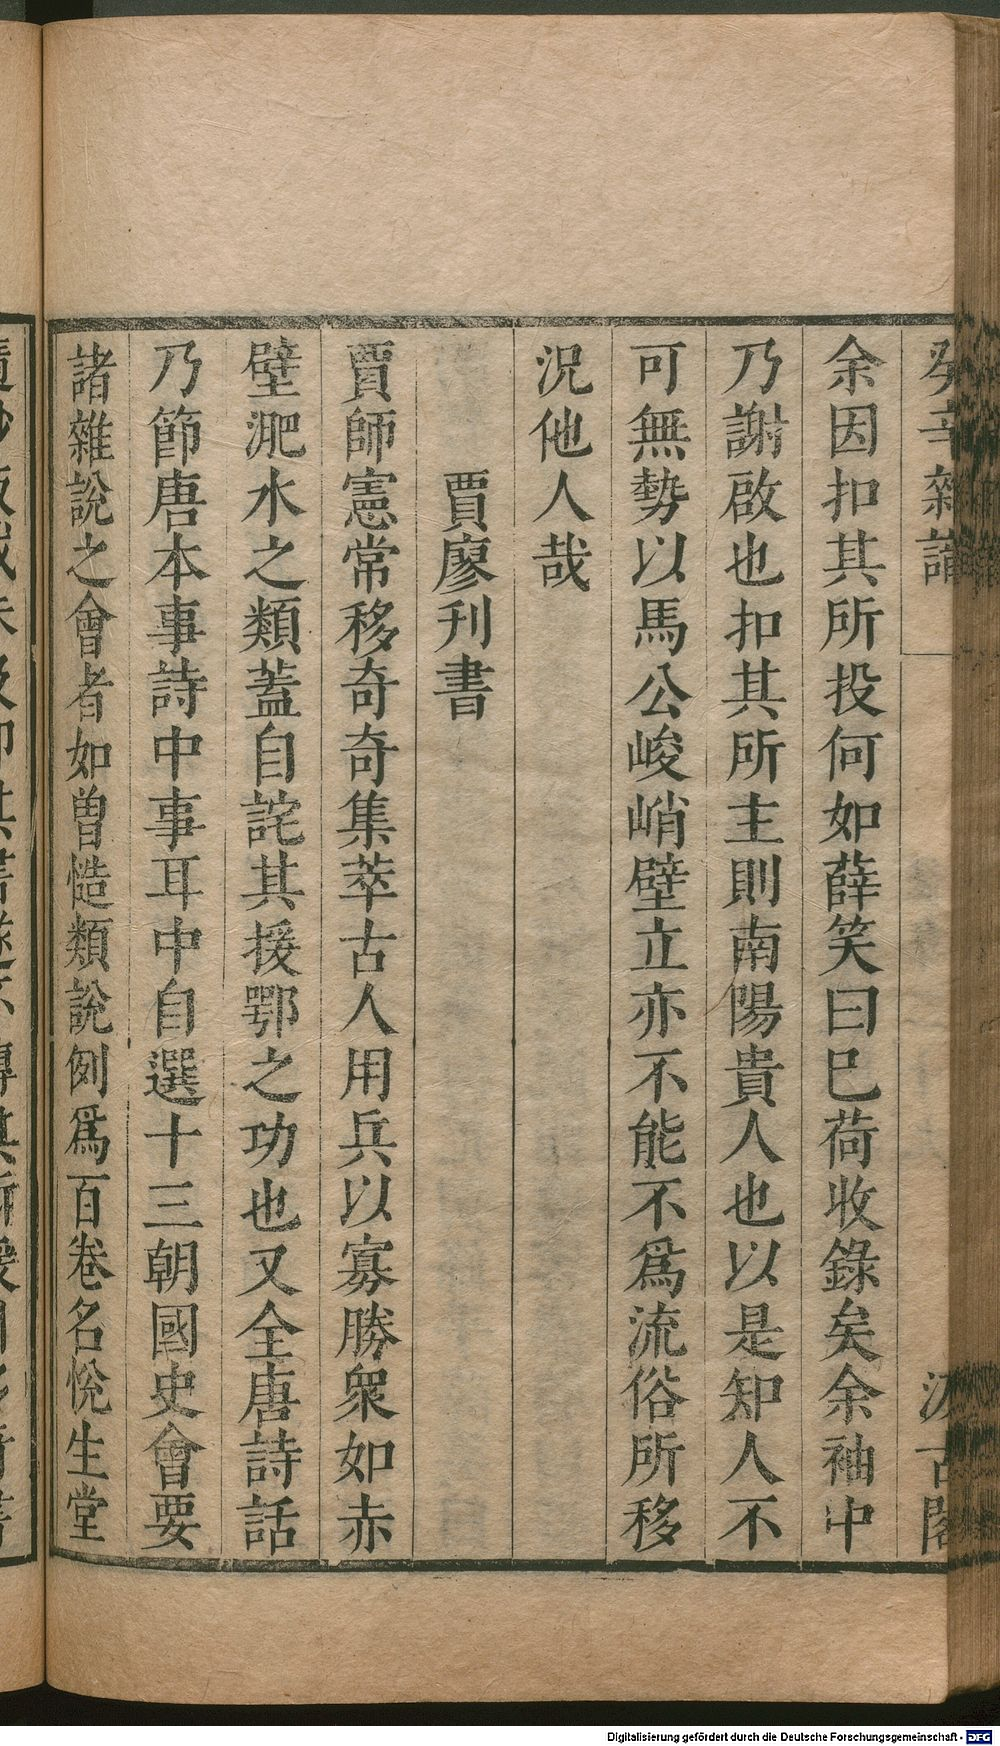 癸辛雜識
汲古閣
余因扣其所投何如薛笑曰巳荷收錄矣余袖中
乃謝啟也扣其所主則南陽貴人也以是知人不
可無勢以馬公峻峭壁立亦不能不爲流俗所移
況他人哉
賈廖刊書
賈師憲常移奇奇集萃古人用兵以寡勝衆如赤
壁淝水之類蓋自詫其援鄂之功也又全唐詩話
乃節唐本事詩中事耳中自選十三朝國史會要
諸雜說之會者如曾慥類說例爲百卷名悅生堂
Digitalisierung gefördert durch die Deutsche Forschungsgemeinschaft - DFG